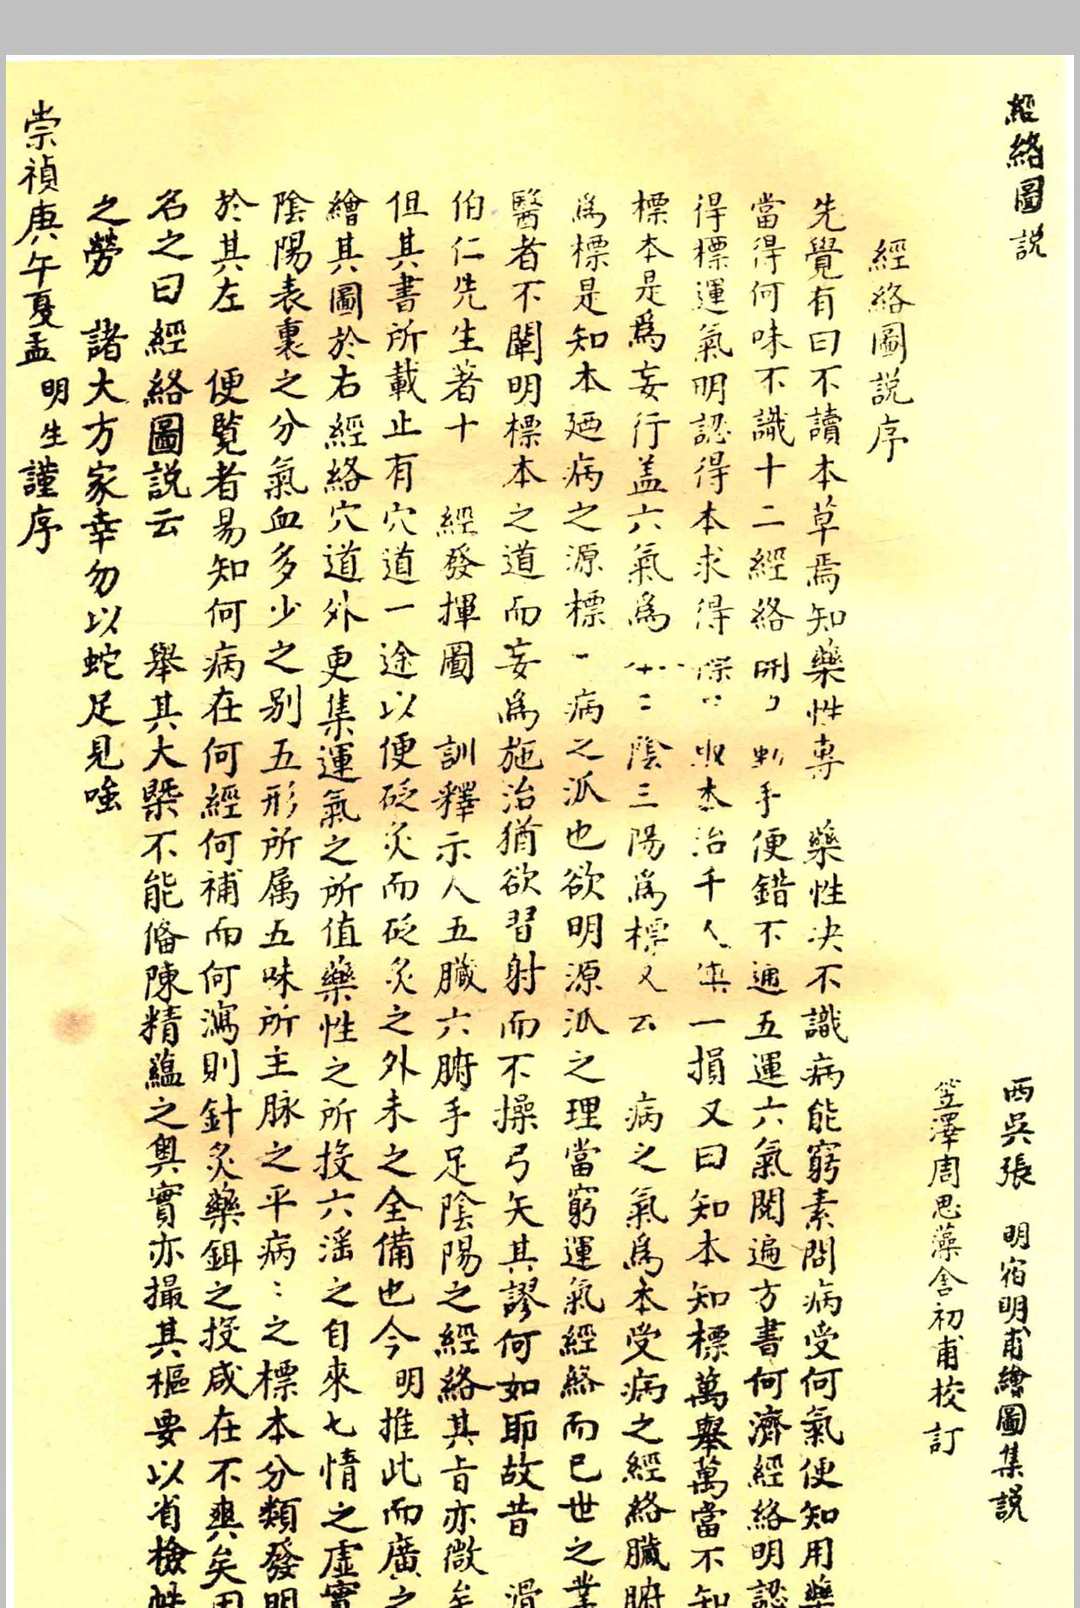 經絡圖説
西吳張 明宿明甫繪圖集説
笠澤周思藻舍初甫校訂
經絡圖説序
先覺有曰不讀本草焉知藥性專 藥性决不識病能窮素問病受何氣便知用藥
當得何味不識十二經絡開 手便錯不通五運六氣閱遍方書何濟經絡明認
得標運氣明認得本求得 治千人 一損又曰知本知標萬舉萬當不知
標本是爲妄行盖六氣爲 二 陰三陽爲標又云 病之氣爲本受病之經絡臟腑
爲標是知本廼病之源標 病之派也欲明源派之理當窮運氣經絡而已世之業
醫者不闡明標本之道而妄爲施治猶欲習射而不操弓矢其謬何如耶故昔 滑
伯仁先生著十 經發揮圖 訓釋示人五臟六腑手足陰陽之經絡其旨亦微矣
但其書所載止有穴道一途以便砭灸而砭灸之外未之全備也今 明推此而廣之
繪其圖於右經絡穴道外更集運氣之所值藥性之所投六滛之自來七情之虛實
陰陽表裏之分氣血多少之别五形所属五味所主脉之平病:之標本分類發明
於其左 便覧者易知何病在何經何補而何瀉則針灸藥餌之投咸在不爽矣因
名之曰經絡圖説云 舉其大槩不能偹陳精蘊之奥實亦撮其樞要以省檢
之勞 諸大方家幸勿以蛇足見嗤
崇禎庚午夏孟 明生謹序